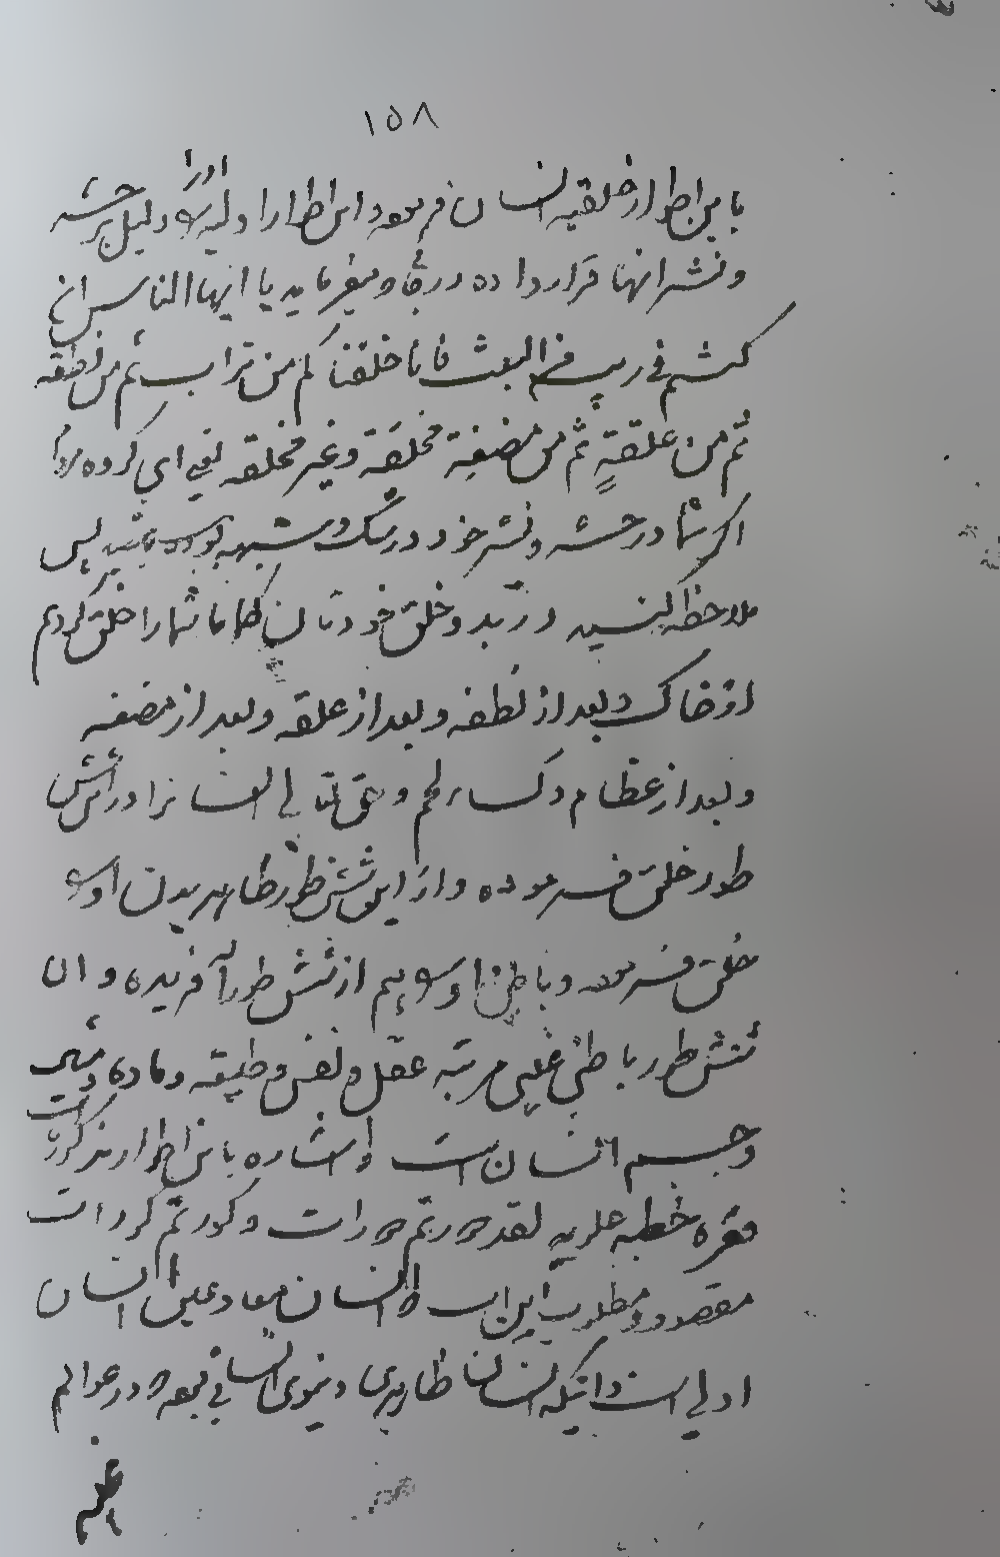 ۱۵۸
باین اطوار خلقیه انسان فرموده این اطوار اولیه اورا دلیل بر حشر
و نشر انها قرار داده در قران میفرماید یا ایها الناس ان
کنتم فی ریب من البعث فانا خلقناکم من تراب ثم من نطفه
ثم من علقةٍ ثم من مضغة مخلقة وغیر مخلقه یعنی ای گروه
اگر شما در حشر و نشر خود در شک و شبهه بوده باشید پس
ملاحظه کنید در بدو خلق خودتان که ما شما را خلق کردیم
از خاک و بعد از نطفه و بعد از علقه و بعد از مضغه
و بعد از عظام و کساء لحم و حق تعالی انسانرا در شش
طور خلق فرموده و از این شش طور ظاهر بدن او
خلق فرموده و باطن او هم از شش طور آفریده و ان
شش طور باطنی غیبی مرتبه عقل و نفس و طبیعه و ماده و
و جسم انسان است و اشاره باین اطوار مذکور است
فقره خطبه علویه لقد درتم دورات و کورتم کورات
مقصود و مطلوب این است که انسان معاد عین انسان
اولی است و اینکه انسان ظاهری دنیوی انسانی بوده در عوالم